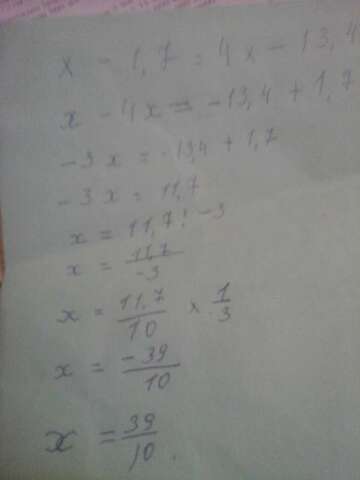 x - 1,7 = 4x - 13,4
x - 4x = -13,4 + 1,7
-3x = -13,4 + 1,7
-3x = 11,7
x = 11,7 : -3
x = 11,7/-3
x = 11,7/10 × 1/3
x = -39/10
x = 39/10.